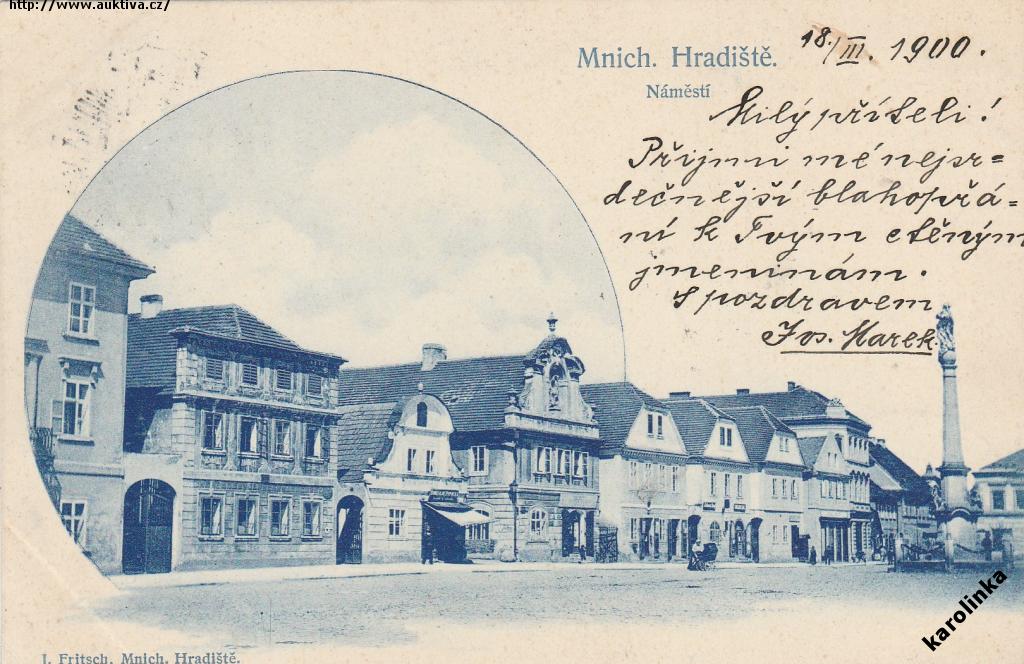 http://www.auktiva.cz/
Mnich. Hradiště.
Náměstí
18./III. 1900.
Milý příteli!
Přijmi mé nejsr-
dečnější blahopřá-
ní k Tvým ctěným
jmeninám.
S pozdravem
Jos. Marek
J. Fritsch, Mnich. Hradiště.
karolinka